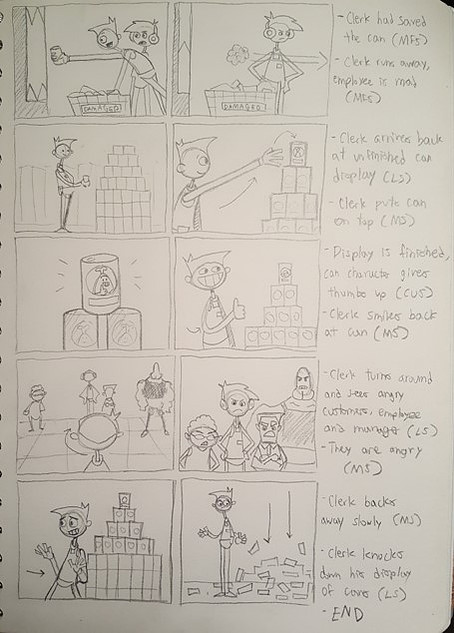 DAMAGED
DAMAGED
- Clerk had saved
the can (MFS)
- Clerk runs away,
employee is mad
(MFS)
- Clerk arrives back
at unfinished can
display (LS)
- Clerk puts can
on top (MS)
- Display is finished,
can character gives
thumbs up (CUS)
- Clerk smiles back
at can (MS)
- Clerk turns around
and sees angry
customers, employee
and manager (LS)
- They are angry
(MS)
- Clerk backs
away slowly (MS)
- Clerk knocks
down his display
of cans (LS)
- END